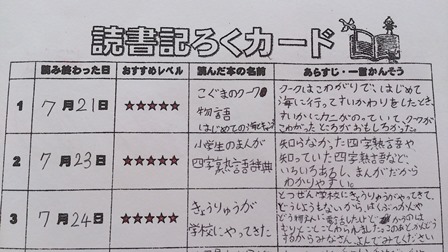 読書記ろくカード
読み終わった日 おすすめレベル 読んだ本の名前 あらすじ・一言かんそう
1 7月21日 ★★★★★ こぐまのクークの
物語
はじめての海
クークはこわがりで、はじめて
海に行ってすいかわりをしたとき、
すいかにカニがのっていて、クークが
こわがったところがおもしろかった。
2 7月23日 ★★★★★ 小学生のまんが
四字熟語辞典
知らなかった四字熟語や
知っていた四字熟語など、
いろいろあるし、まんがだから
わかりやすい。
3 7月24日 ★★★★★ きょうりゅうが
学校にやってきた
とつぜん学校にきょうりゅうがやってきて、
どうしようもないからはくぶつかんや